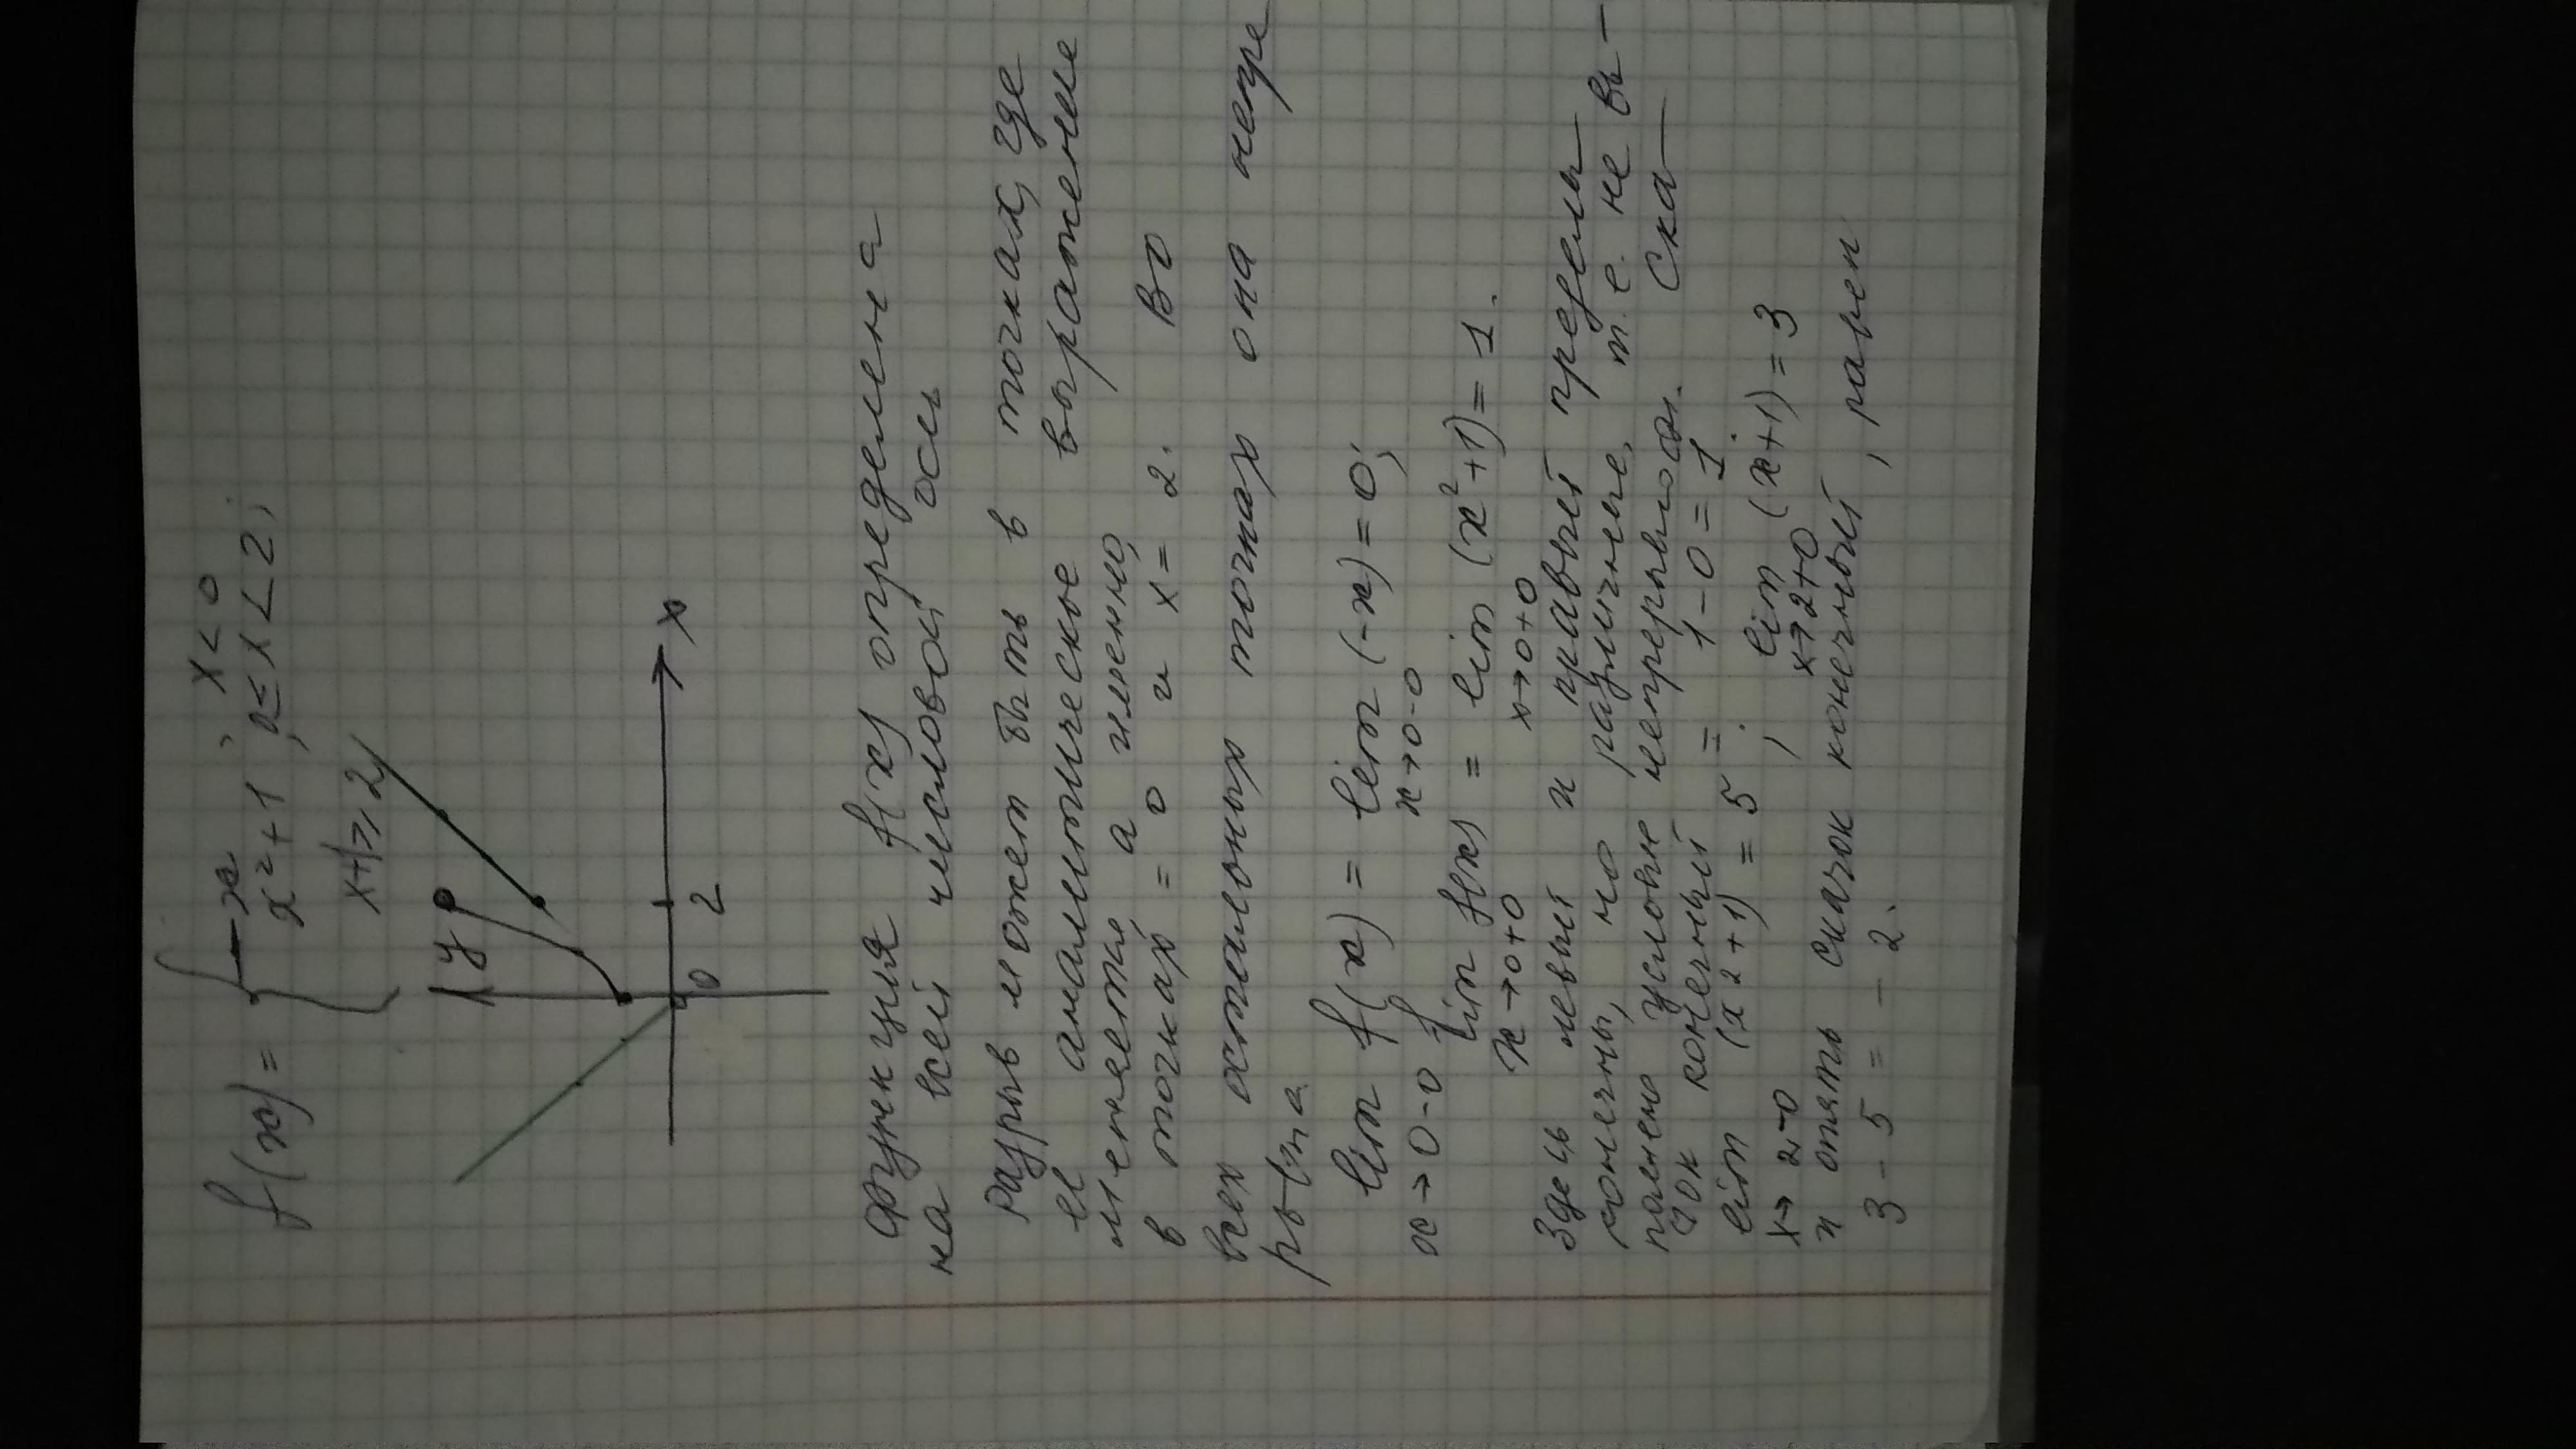 f(x) = { -x, x < 0
x²+1, 0 ≤ x < 2;
x+1, ≥ 2
y
x
0 2
Функция f(x) определена
на всей числовой ось
Разрыв может быть в точках, где
её аналитическое выражение
меняется, а именно,
в точках = 0 и x = 2. Во
всех остальных точках она непре
рывна
lim f(x) = lim (-x) = 0;
x→0-0 x→0-0
lim f(x) = lim (x²+1) = 1.
x→0+0 x→0+0
Здесь левый и правый пределы
конечны, но различные, т. е. не вы-
полнено условие непрерывност.
Ска-
чок конечный = 1 - 0 = 1.
lim (x²+1) = 5, lim (x+1) = 3
x→2-0 x→2+0
и опять скачок конечный, равен
3 - 5 = - 2.